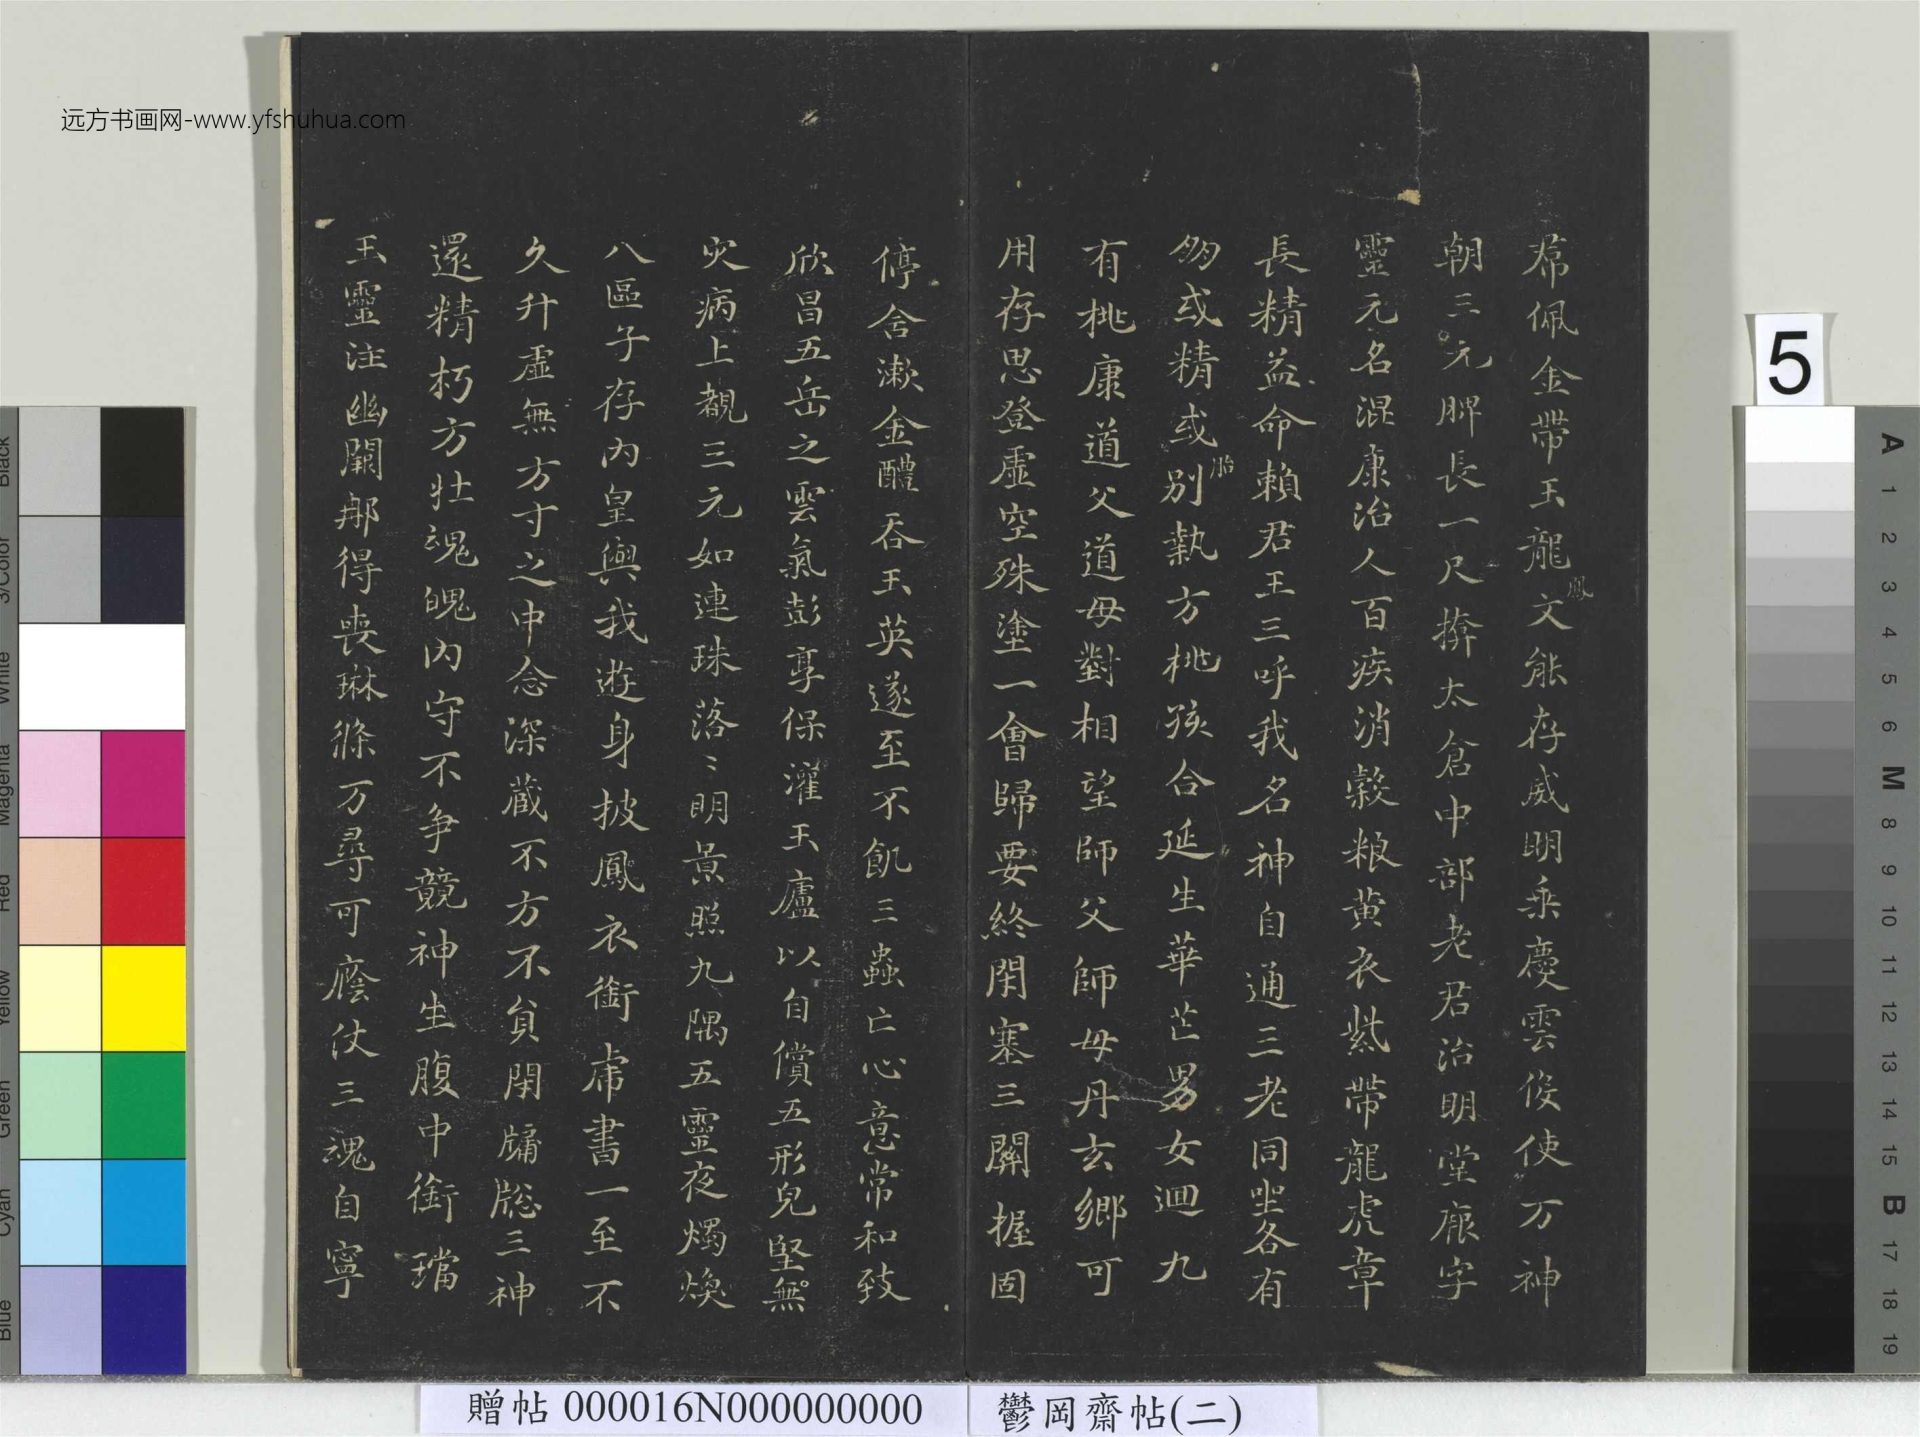 远方书画网-www.yfshuhua.com
帬佩金帶玉龍文能存威明乗慶雲俊使万神
鳳
朝三元脾長一尺揜太倉中部老君治明堂厫字
靈元名混康治人百疾消穀粮黄衣紫帶龍虎章
長精益命賴君王三呼我名神自通三老同坐各有
朋或精或别執方桃孩合延生華芒男女迴九
胎
有桃康道父道母對相望師父師母丹玄鄉可
用存思登虚空殊塗一會歸要終閉塞三關握固
停含漱金醴吞玉英遂至不飢三蟲亡心意常和致
欣昌五岳之雲氣彭享保灌玉廬以自償五形完堅無
灾病上覩三元如連珠落〻明景照九隅五靈夜燭煥
八區子存内皇與我遊身披鳳衣銜虎書一至不
久升虚無方寸之中念深藏不方不負閉牖牕三神
還精朽方壮魂魄内守不争競神生腹中銜璫
玉靈注幽闕那得喪琳條万尋可廕仗三魂自寧
5
Black
3/Color
White
Magenta
Red
Yellow
Green
Cyan
Blue
A
1
2
3
4
5
6
M
8
9
10
11
12
13
14
15
B
17
18
19
贈帖 000016N000000000
鬱岡齋帖(二)